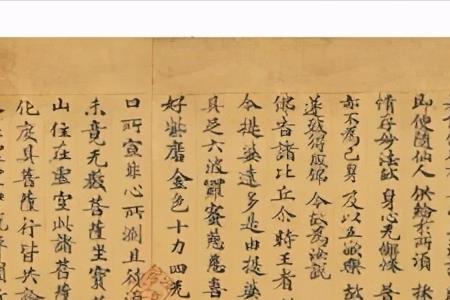 即便隨仙人 供給於所須 採
情存妙法故 身心无懈惓
亦不為己身 及以五欲樂 故
遂致得成佛 今故為汝說
佛告諸比丘尒時王者
今提婆達多是由提婆
具足六波羅蜜慈悲喜
好紫磨金色十力四无
口所宣非心所測且待
未竟无數菩薩坐寶
山住在虛空此諸菩薩
化度具菩薩行皆共論